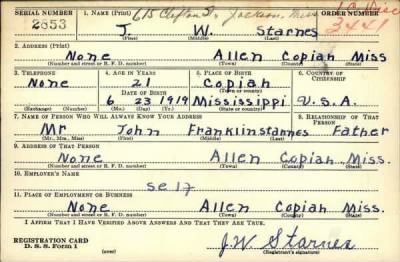 615 Clifton St, Jackson, Miss
SERIAL NUMBER 1. NAME (Print) ORDER NUMBER
2853 J. W. Starnes 3441
(First) (Middle) (Last)
2. ADDRESS (Print)
None Allen Copiah Miss
(Number and street or R. F. D. number) (Town) (County) (State)
3. TELEPHONE 4. AGE IN YEARS 5. PLACE OF BIRTH 6. COUNTRY OF CITIZENSHIP
None 21 Copiah
(Town or county)
DATE OF BIRTH
6 23 1919 Mississippi U.S.A.
(Exchange) (Number) (Mo.) (Day) (Yr.) (State or country)
7. NAME OF PERSON WHO WILL ALWAYS KNOW YOUR ADDRESS 8. RELATIONSHIP OF THAT PERSON
Mr John Franklin Starnes Father
(Mr., Mrs., Miss) (First) (Middle) (Last)
9. ADDRESS OF THAT PERSON
None Allen Copiah Miss.
(Number and street or R. F. D. number) (Town) (County) (State)
10. EMPLOYER'S NAME
Self
11. PLACE OF EMPLOYMENT OR BUSINESS
None Allen Copiah Miss.
(Number and street or R. F. D. number) (Town) (County) (State)
I AFFIRM THAT I HAVE VERIFIED ABOVE ANSWERS AND THAT THEY ARE TRUE.
REGISTRATION CARD
D. S. S. Form 1 (over) J.W Starnes
(Registrant's signature)